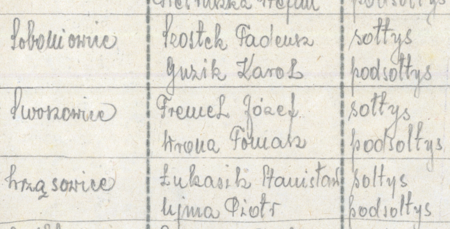 podsołtys
Soboniowice Szostek Tadeusz sołtys
Guzik Karol podsołtys
Sworzowice Fremel Józef sołtys
Wrona Tomasz podsołtys
Wrząsowice Łukasik Stanisław sołtys
Ujma Piotr podsołtys